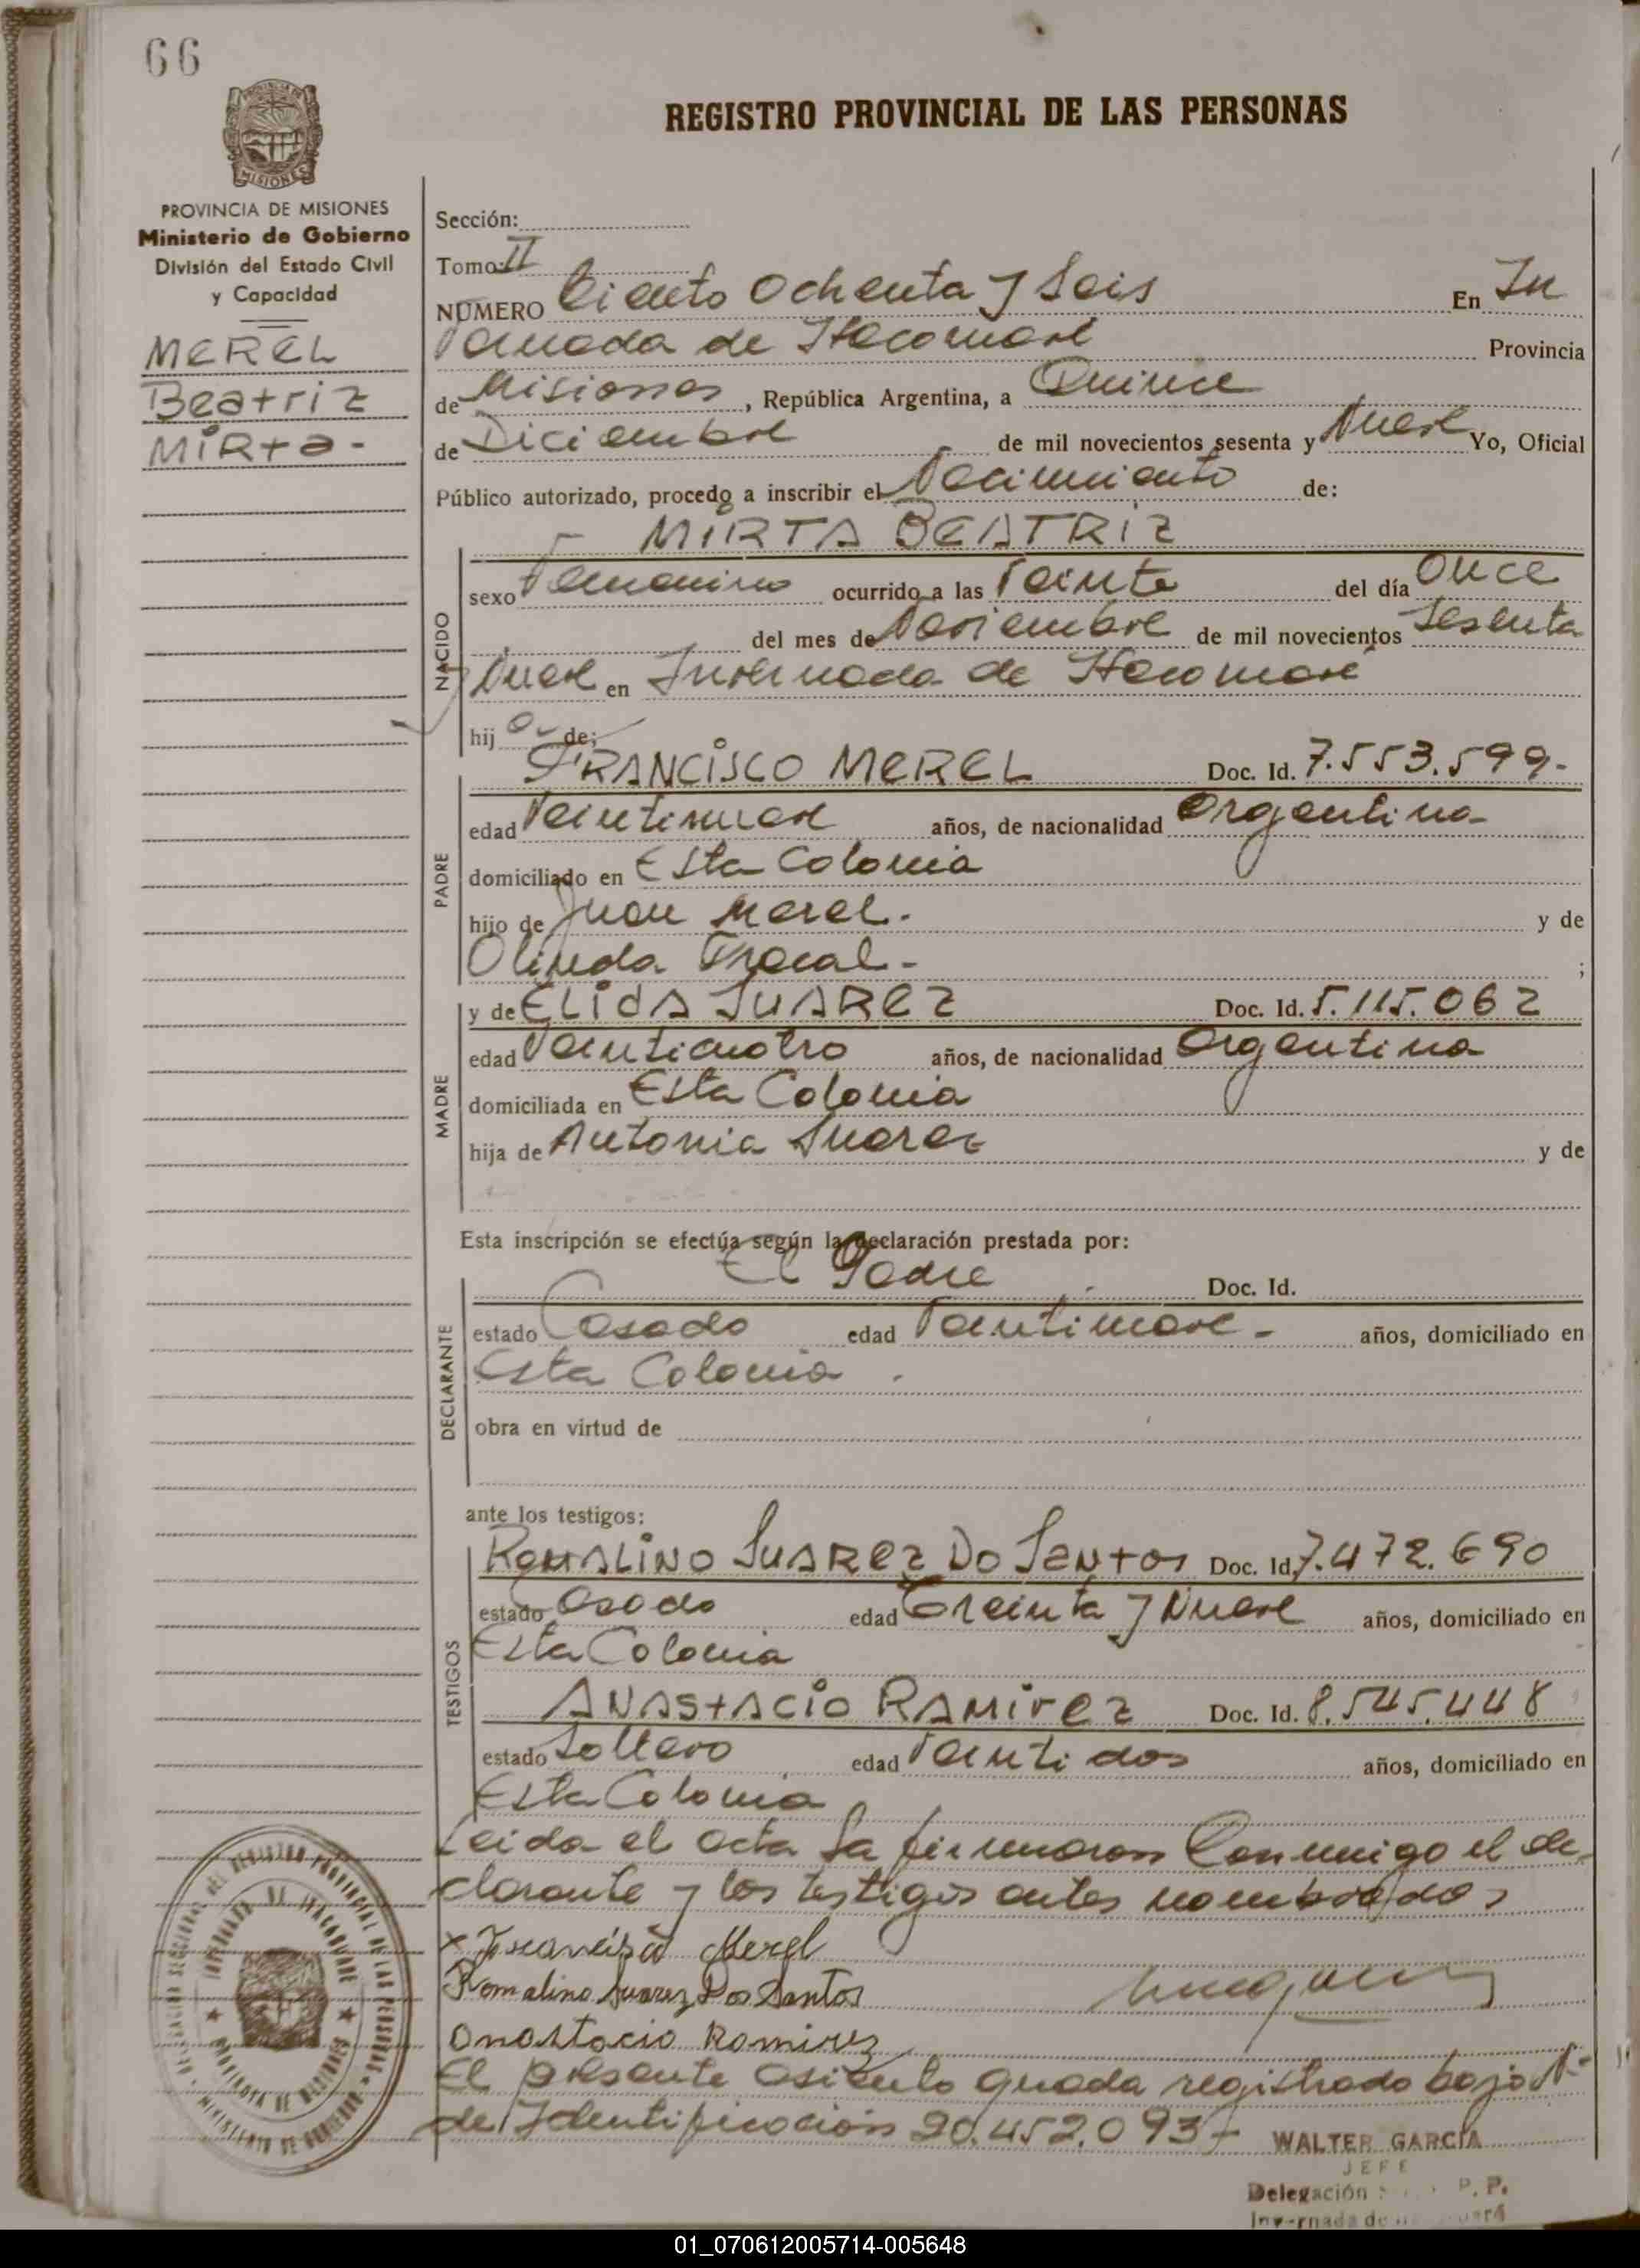 66
REGISTRO PROVINCIAL DE LAS PERSONAS
PROVINCIA DE MISIONES
Ministerio de Gobierno
División del Estado Civil
y Capacidad
MEREL
Beatriz
MiRta-
Sección:
Tomo: II
NÚMERO Ciento Ochenta y Seis En In
vernada de Itacoruare Provincia
de Misiones, República Argentina, a Quince
de Diciembre de mil novecientos sesenta y Nueve Yo, Oficial
Público autorizado, procedo a inscribir el Nacimiento de:
MIRTA BEATRIZ
NACIDO
sexo Femenino ocurrido a las Veinte del día Once
del mes de Noviembre de mil novecientos Sesenta
y Nueve en Invernada de Itacoruare
hij a de:
FRANCISCO MEREL Doc. Id. 7.553.599-
PADRE
edad Veintinueve años, de nacionalidad Argentina
domiciliado en Esta Colonia
hijo de Juan Merel. y de
Olinda -
;
y de ELIDA SUAREZ Doc. Id. 5.115.062
MADRE
edad Veinticuatro años, de nacionalidad Argentina
domiciliada en Esta Colonia
hija de Antonia Suarez y de
Esta inscripción se efectúa según la declaración prestada por:
El Padre Doc. Id.
DECLARANTE
estado Casado edad Veintinueve- años, domiciliado en
Esta Colonia.
obra en virtud de
ante los testigos:
ROMALINO SUAREZ DO SANTOS Doc. Id. 7.472.690
TESTIGOS
estado Casado edad Treinta y Nueve años, domiciliado en
Esta Colonia
ANASTACIO RAMIREZ Doc. Id. 8.545.448
estado Soltero edad Veintidos años, domiciliado en
Esta Colonia
Leida el acta la firmaron Conmigo el de-
clarante y los testigos antes nombrados
x Francisco Merel
Romalino Suarez Dos Santos
Anastacio Ramirez
El presente asiento queda registrado bajo N°
de Identificacion 20.452.093-
WALTER GARCÍA
JEFE
Delegación P. P.
Invernada de
01_070612005714-005648